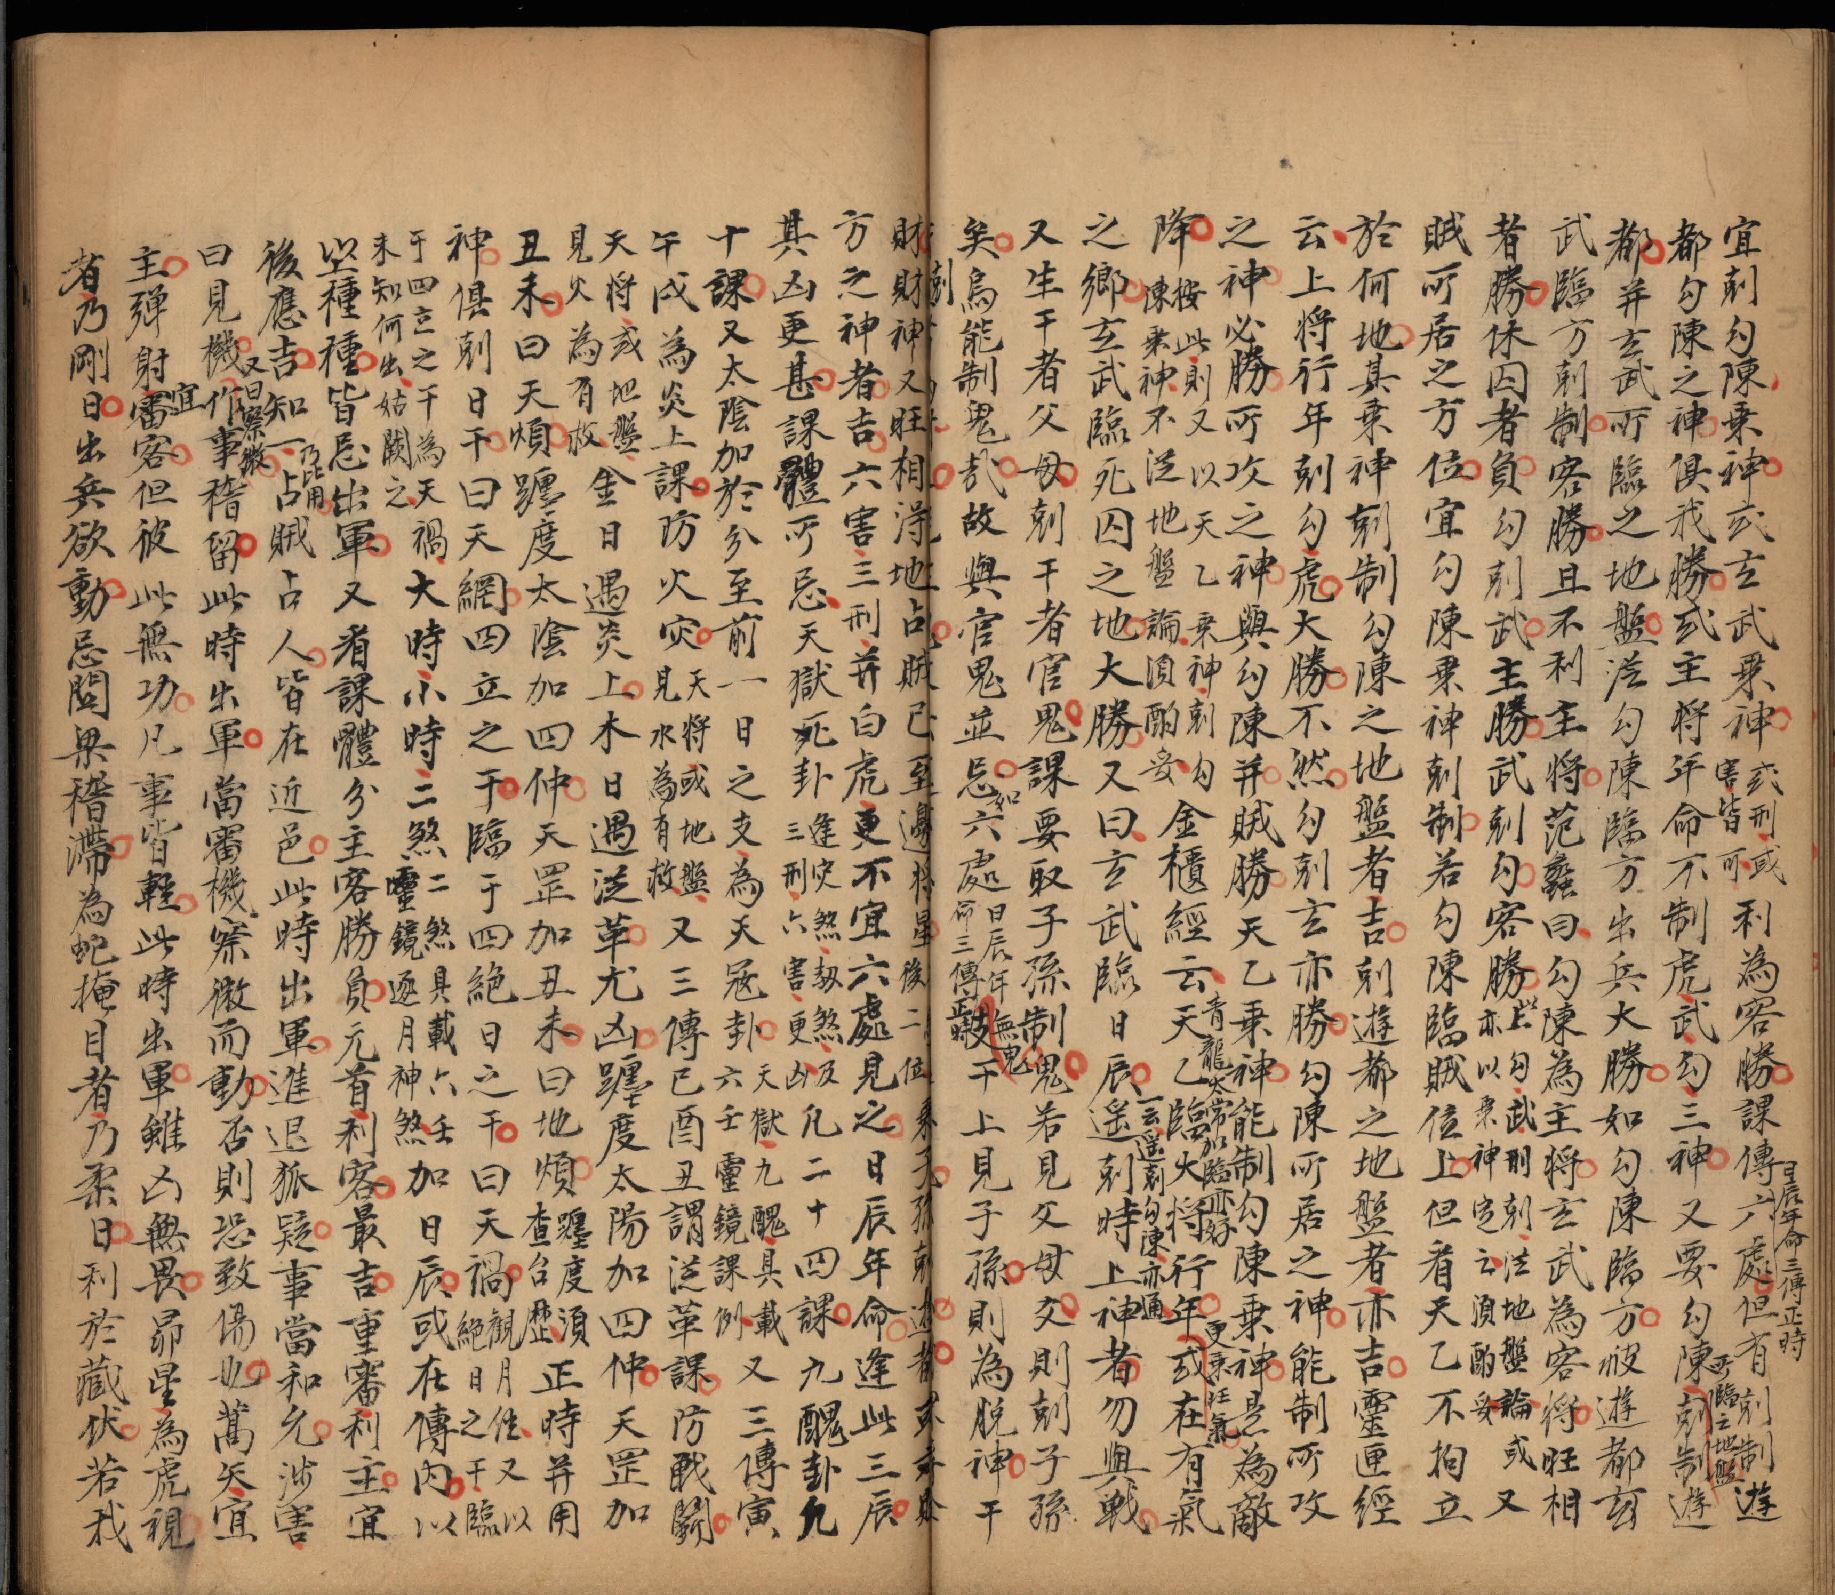 宜剋勾陳乗神或玄武乗神或刑或害皆可利為客勝課傳六處日辰年命三傳正時但有剋制遊
都勾陳之神俱我勝或主将年命不制虎武勾三神又要勾陳所臨云地盤剋制遊
都并玄武所臨之地盤從勾陳臨方出兵大勝如勾陳臨方被遊都玄
武臨方剋制客勝且不利主将范蠡曰勾陳為主将玄武為客将旺相
者勝休囚者負勾剋武主勝武剋勾客勝此上勾武刑剋從地盤論或又亦以乗神定云須酌妥
賊所居之方位宜勾陳乗神剋制若勾陳臨賊位上但看天乙不拘立
於何地其乗神剋制勾陳之地盤者吉剋遊都之地盤者亦吉靈匣經
云上将行年剋勾虎大勝不然勾剋玄亦勝勾陳所居之神能制所攻
之神必勝所攻之神與勾陳并賊勝天乙乗神能制勾陳乗神是為敵
降按此則又以天乙乗神剋勾陳乗神不從地盤論須酌妥金櫃經云青龍太常加臨亦好天乙臨大将行年或在有氣更乗旺氣
之鄉玄武臨死囚之地大勝又曰玄武臨日辰遥剋時上神者勿與戰一云遥剋勾陳亦通
又生干者父母剋干者官鬼課要取子孫制鬼若見父母爻則剋子孫
矣烏能制鬼哉故與官鬼並忌如六處日辰年命三傳正時無鬼干上見子孫則為脱神干
剋
財財神又旺相得地占賊已至邊将星後二位乗子孫剋遊都或玄
方之神者吉六害三刑并白虎更不宜六處見之日辰年命逢此三辰
其凶更甚課體所忌天獄死卦逢灾煞劫煞及三刑六害更凶凡二十四課九醜卦九
十課又太陰加於分至前一日之支為天寇卦天獄九醜具載六壬靈鏡課例又三傳寅
午戌為炎上課防火灾天将或地盤見水為有救又三傳巳酉丑謂從革課防戰鬭
天将或地盤見火為有救金日遇炎上木日遇從革尤凶躔度太陽加四仲天罡加
丑未曰天煩躔度太陰加四仲天罡加丑未曰地煩躔度須查台歷正時并用
神俱剋日干曰天網四立之干臨于四絶日之干曰天禍觀月佳又以絶日之干臨
于四立之干為天禍未知何出姑闕之大時小時二煞二煞具載六壬靈鏡逐月神煞加日辰或在傳内以
上種種皆忌出軍又看課體分主客勝負元首利客最吉重審利主宜
後應吉知一乃比用占賊占人皆在近邑此時出軍進退狐疑事當和允涉害
曰見機又曰察微作事稽留此時出軍當審機察微而動否則恐致傷也蒿矢宜
主弹射宜審客但彼此無功凡事皆輕此時出軍雖凶無畏昴星為虎視
者乃剛日出兵欲動忌関梁稽滯為蛇掩目者乃柔日利於藏伏若我